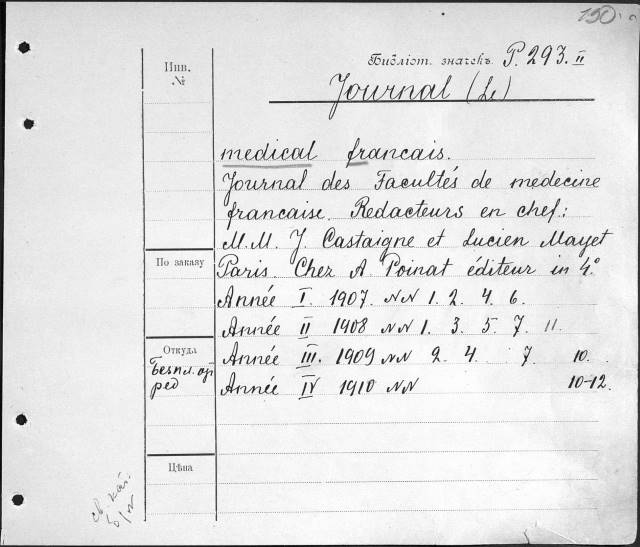 150
Инв.
№
Библіот. значекъ P. 293. II
Journal (Le)
medical francais.
Journal des Facultés de medecine
francaise. Redacteurs en chef:
M.M. J. Castaigne et Lucien Mayet
По заказу
Paris. Chez A. Poinat éditeur in 4°
Année I. 1907. NN 1. 2. 4. 6.
Année II 1908 NN 1. 3. 5. 7. 11.
Откуда
Безпл. от
ред
Année III. 1909 NN 2. 4. 7 10.
Année IV 1910 NN 10-12.
Цѣна
св. кат.